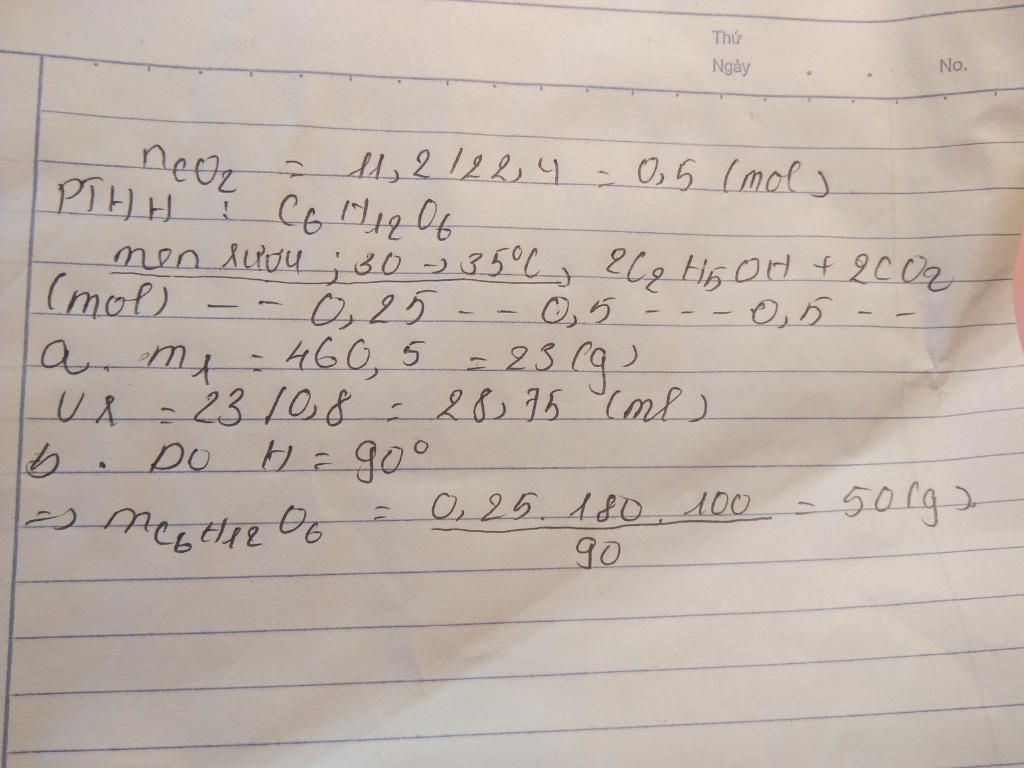 Thứ
Ngày . . No.
nCO2 = 11,2/22,4 = 0,5 (mol)
PTHH : C6H12O6
men rượu ; 30 → 35°C, 2C2H5OH + 2CO2
(mol) -- 0,25 -- 0,5 --- 0,5 --
a. m1 = 460,5 = 23 (g)
V1 = 23/0,8 = 28,75 (ml)
b. DO H = 90°
=> mC6H12O6 = 0,25.180.100/90 = 50(g).